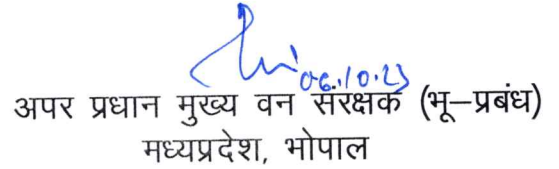 06.10.23
अपर प्रधान मुख्य वन संरक्षक (भू–प्रबंध)
मध्यप्रदेश, भोपाल